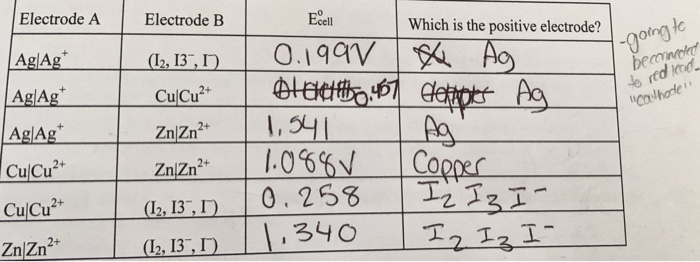 Electrode A Electrode B E°cell Which is the positive electrode?
Ag|Ag⁺ (I₂, I3⁻, I⁻) 0.199V Ag
Ag|Ag⁺ Cu|Cu²⁺ 0.457 Ag
Ag|Ag⁺ Zn|Zn²⁺ 1.541 Ag
Cu|Cu²⁺ Zn|Zn²⁺ 1.088V Copper
Cu|Cu²⁺ (I₂, I3⁻, I⁻) 0.258 I₂ I₃ I⁻
Zn|Zn²⁺ (I₂, I3⁻, I⁻) 1.340 I₂ I₃ I⁻
-going to
be connected
to red lead
"cathode"